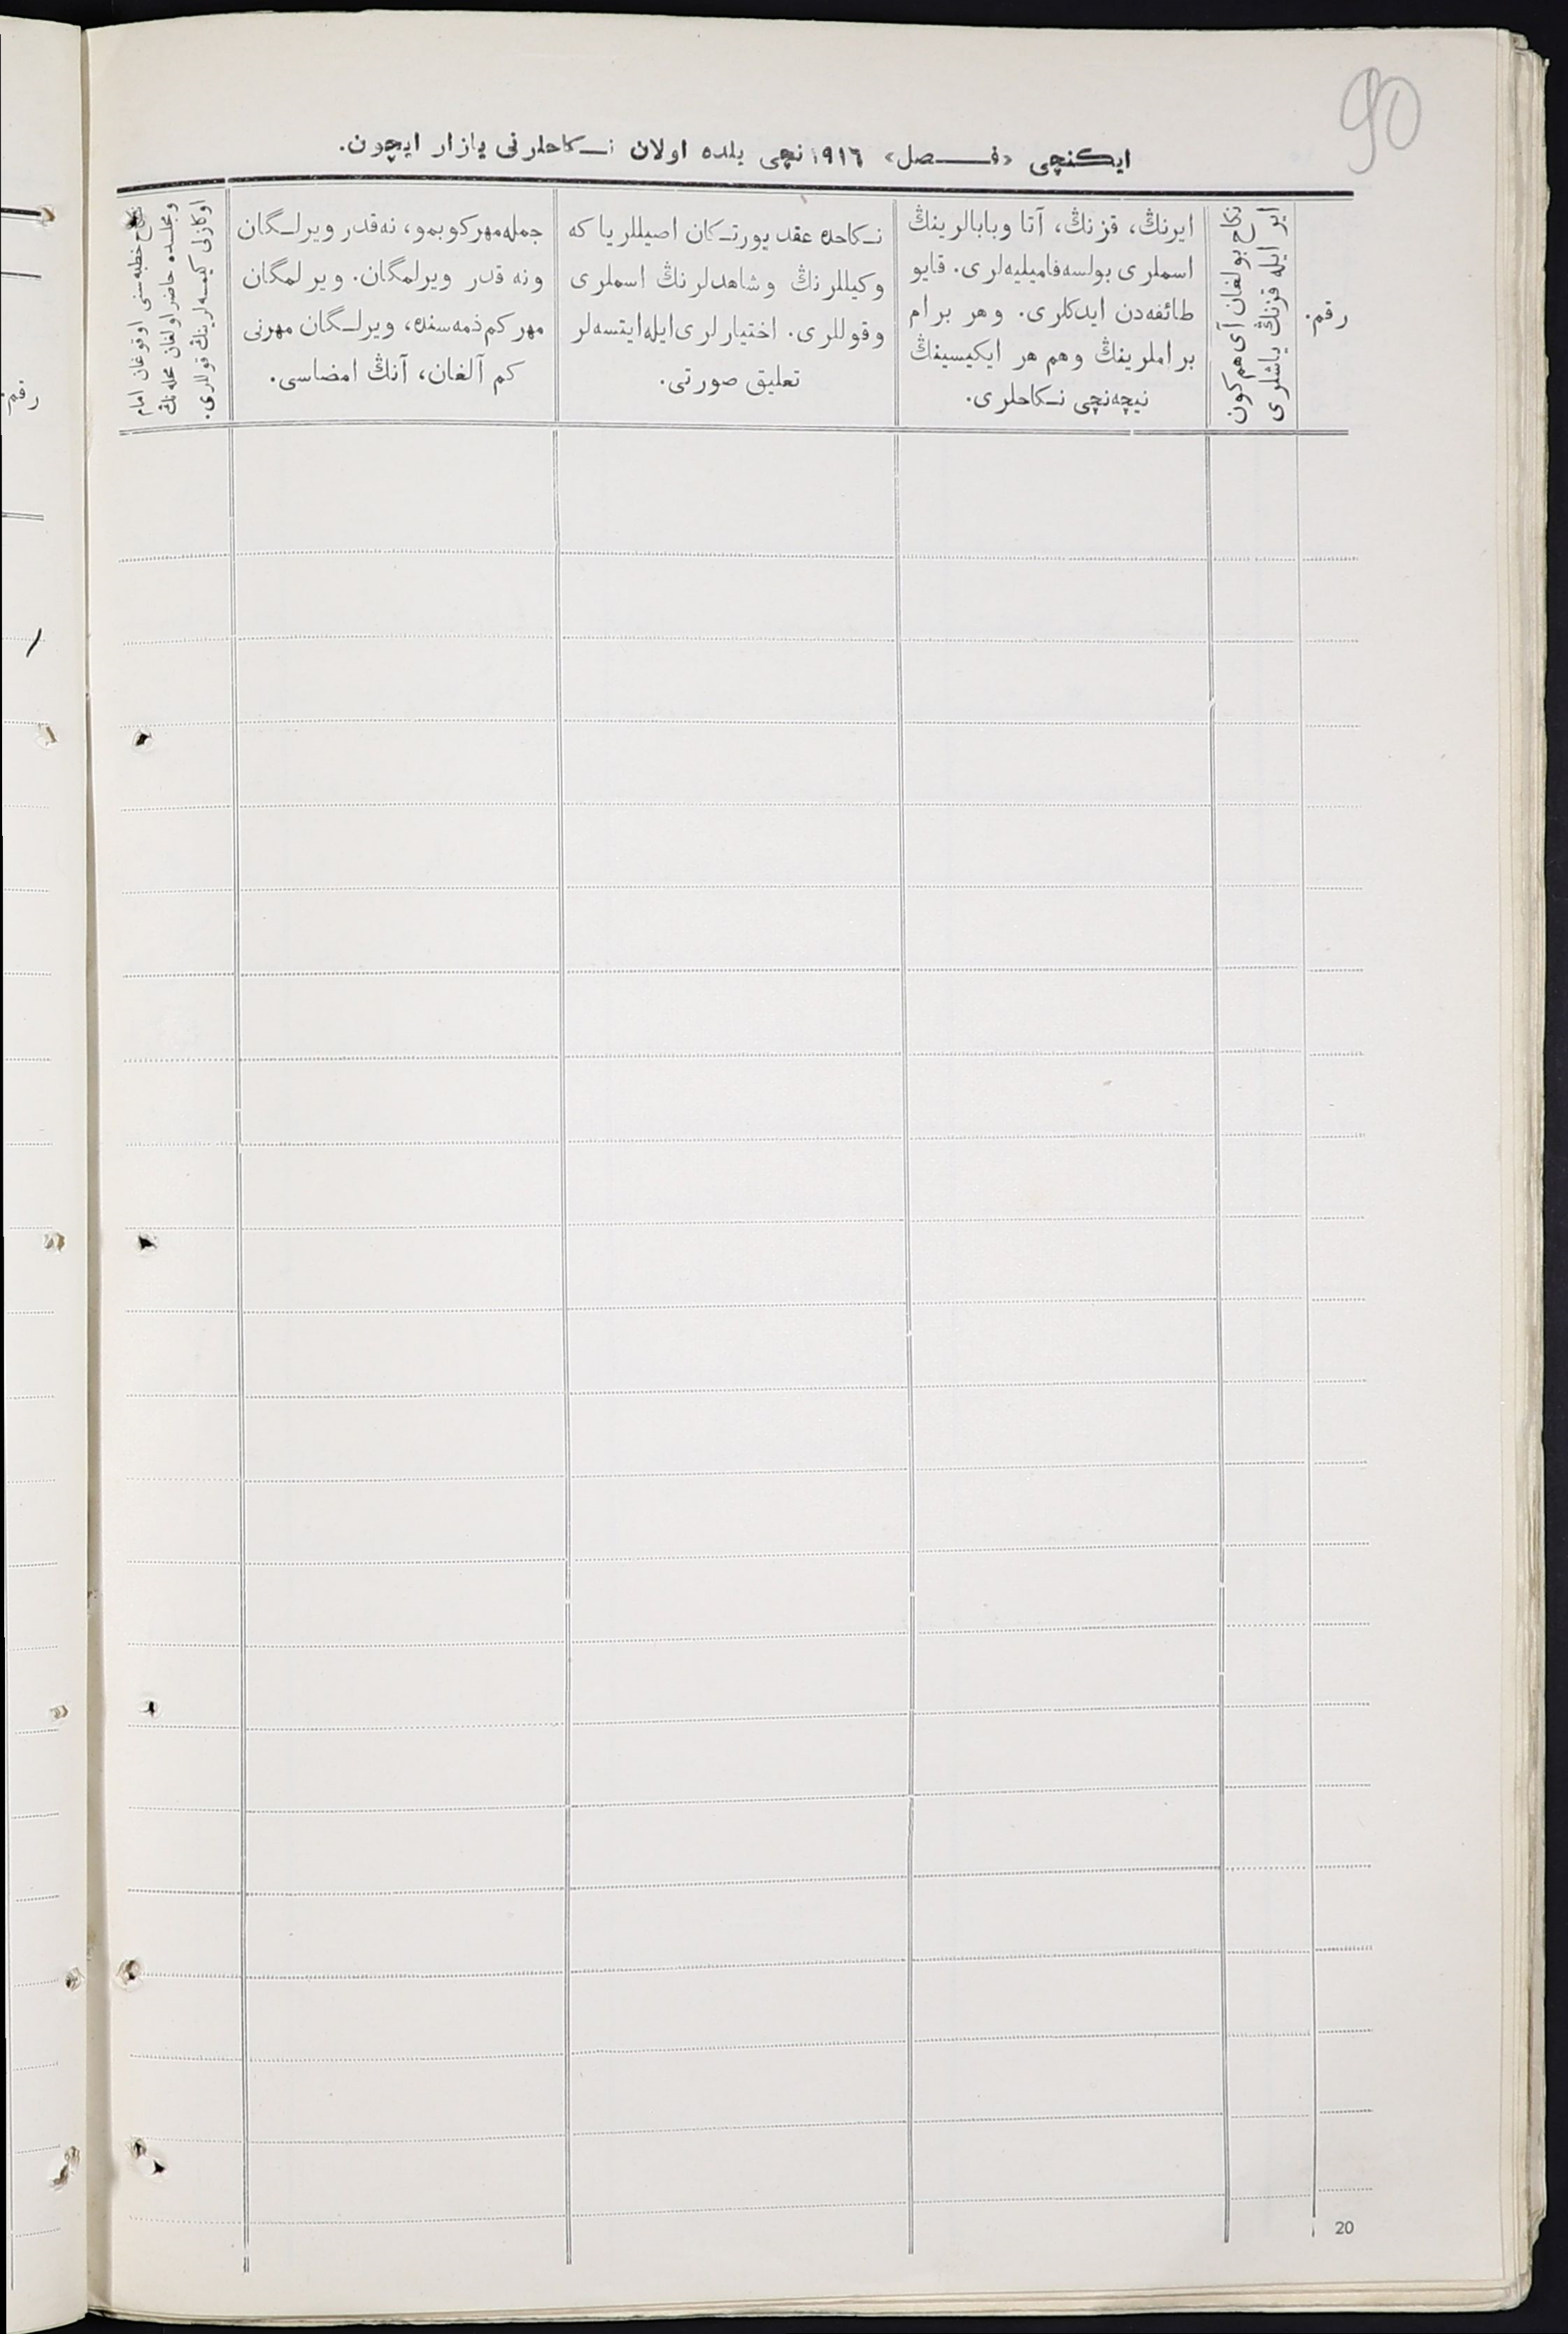 90
ایکنچی «فـصل» ۱۹۱٦ نچی یلده اولان نـکاحلرنی یازار ایچون.
رقم.
ایر ایله قزنڭ یاشلری
نکاح بولغان آی هم کون
ایرنڭ، قزنڭ، آتا وبابالرینڭ
اسملری بولسه فامیلیه‌لری. قایو
طائفه‌دن ایدکلری. وهر برام
براملرینڭ وهم هر ایکیسینڭ
نیچه‌نچی نـکاحلری.
نـکاحده عقد یورتـکان اصیللر یا که
وکیللرنڭ وشاهدلرنڭ اسملری
وقوللری. اختیارلری ایله ایتسه‌لر
تعلیق صورتی.
جمله مهر کوبمو، نه‌قدر ویرلـگان
ونه قدر ویرلمگان. ویرلمگان
مهر کم ذمه‌سنده، ویرلـگان مهرنی
کم آلغان، آنڭ امضاسی.
نکاح خطبه‌سنی اوقوغان امام
ومجلسده حاضر اولغان محله‌نڭ
اوکازلی کیمسه‌لرینڭ قوللری.
رقم.
20